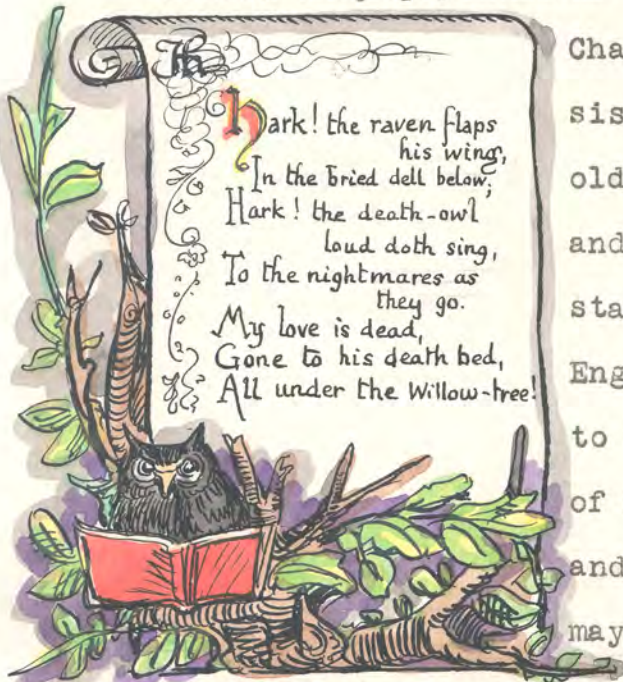 Hark! the raven flaps
his wing,
In the bried dell below;
Hark! the death-owl
loud doth sing,
To the nightmares as
they go.
My love is dead,
Gone to his death bed,
All under the Willow-tree!
Cha
sis
old
and
sta
Eng
to
of
and
may